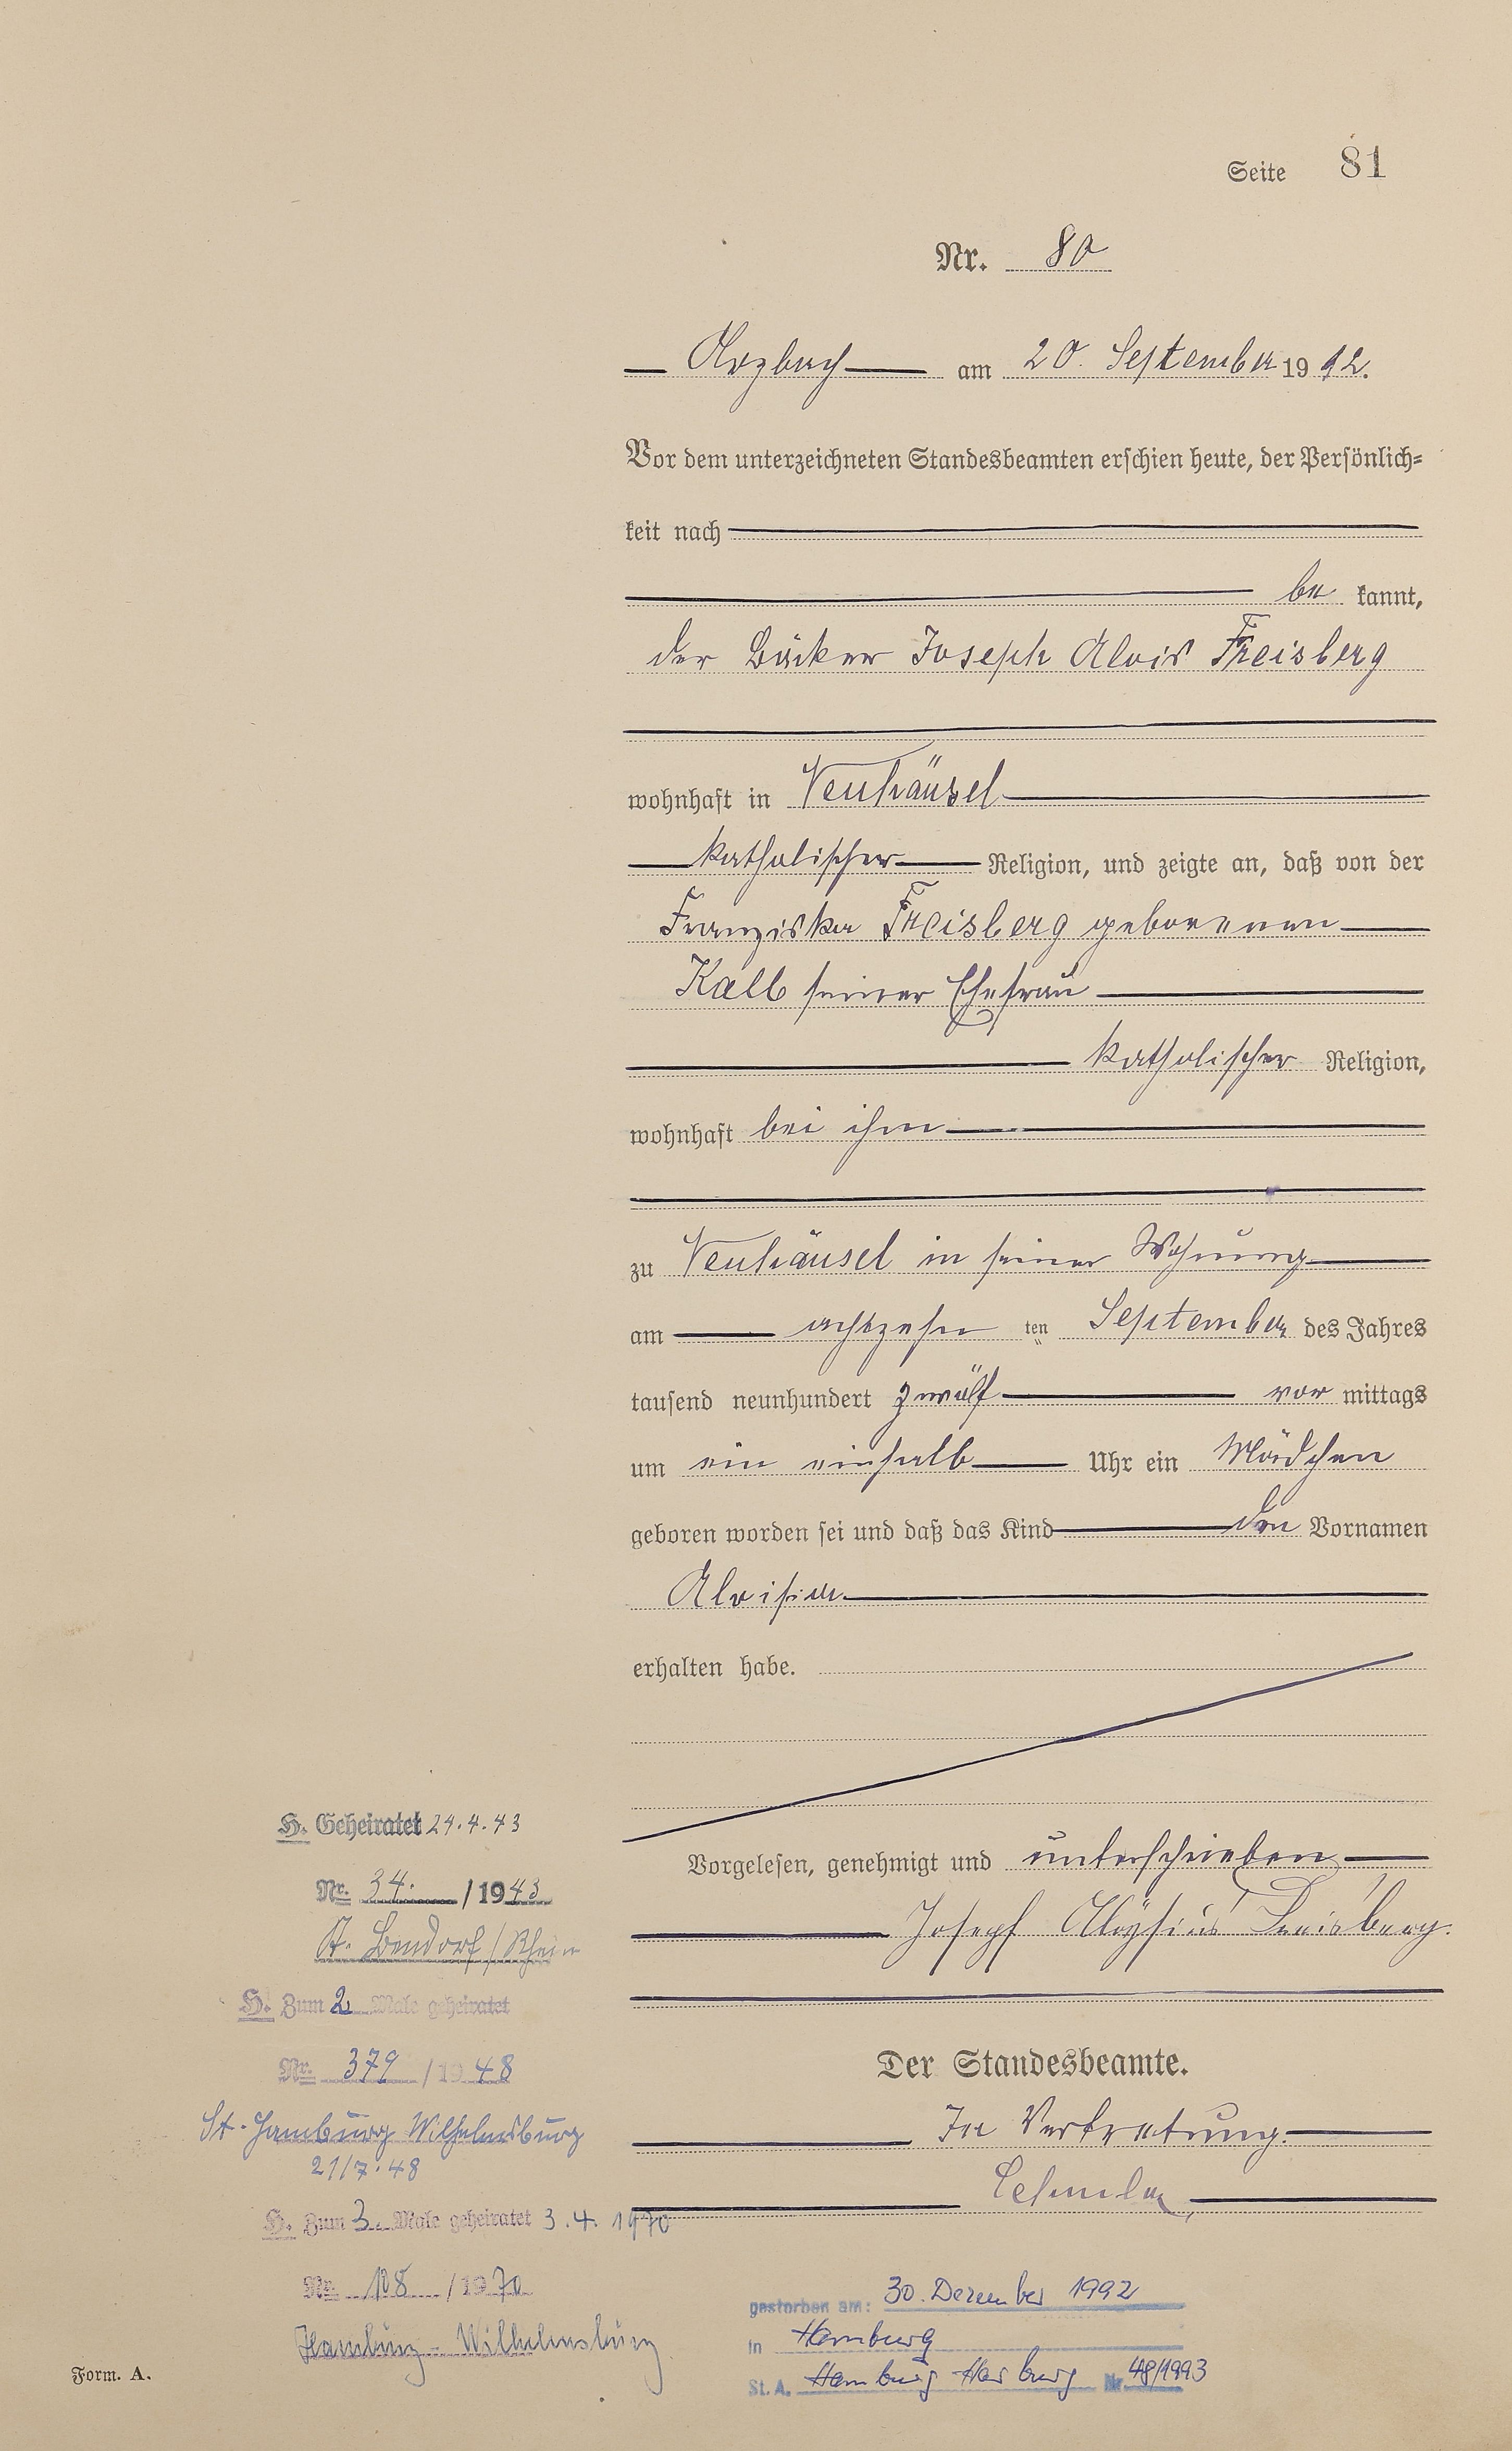 Seite 81
Nr. 80
Arzbach am 20. September 1912.
Vor dem unterzeichneten Standesbeamten erschien heute, der Persönlich=
keit nach
be kannt,
der Bäcker Joseph Alois Freisberg
wohnhaft in Neuhäusel
katholischer Religion, und zeigte an, daß von der
Franziska Freisberg geborenen
Kalb seiner Ehefrau
katholischer Religion,
wohnhaft bei ihm
zu Neuhäusel in seiner Wohnung
am achtzehn ten September des Jahres
tausend neunhundert zwölf vor mittags
um ein einhalb Uhr ein Mädchen
geboren worden sei und daß das Kind den Vornamen
Aloisia
erhalten habe.
Vorgelesen, genehmigt und unterschrieben
Joseph Aloysius Freisberg.
Der Standesbeamte.
In Vertretung.
H. Geheiratet 24.4.43
Nr. 34. / 1943
St. Bendorf / Rhein
H. Zum 2. Male geheiratet
Nr. 379 / 1948
St. Hamburg Wilhelmsburg
21/7.48
H. Zum 3. Male geheiratet 3.4.1970
Nr. 108 / 1970
Hamburg - Wilhelmsburg
gestorben am: 30. Dezember 1992
in Hamburg
St. A. Hamburg Harburg Nr. 48/1993
Form. A.